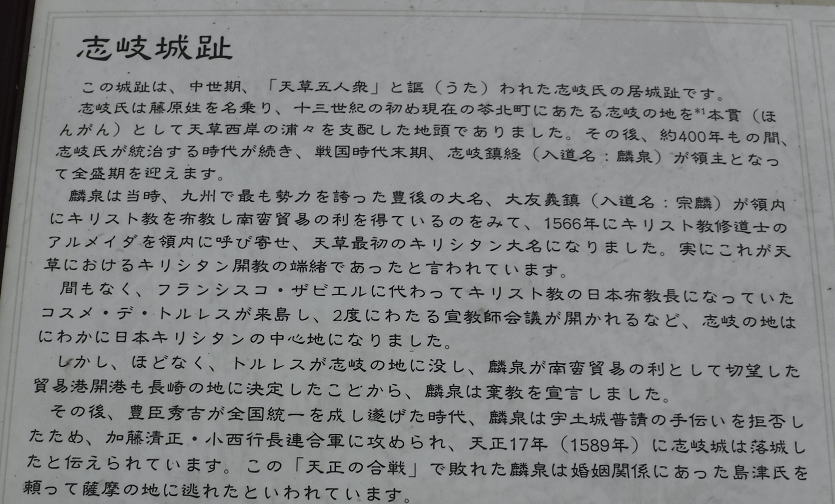 志岐城趾
この城趾は、中世期、「天草五人衆」と謳（うた）われた志岐氏の居城趾です。
志岐氏は藤原姓を名乗り、十三世紀の初め現在の苓北町にあたる志岐の地を*1本貫（ほ
んがん）として天草西岸の浦々を支配した地頭でありました。その後、約400年もの間、
志岐氏が統治する時代が続き、戦国時代末期、志岐鎮経（入道名：麟泉）が領主となっ
て全盛期を迎えます。
麟泉は当時、九州で最も勢力を誇った豊後の大名、大友義鎮（入道名：宗麟）が領内
にキリスト教を布教し南蛮貿易の利を得ているのをみて、1566年にキリスト教修道士の
アルメイダを領内に呼び寄せ、天草最初のキリシタン大名になりました。実にこれが天
草におけるキリシタン開教の端緒であったと言われています。
間もなく、フランシスコ・ザビエルに代わってキリスト教の日本布教長になっていた
コスメ・デ・トルレスが来島し、2度にわたる宣教師会議が開かれるなど、志岐の地は
にわかに日本キリシタンの中心地になりました。
しかし、ほどなく、トルレスが志岐の地に没し、麟泉が南蛮貿易の利として切望した
貿易港開港も長崎の地に決定したことから、麟泉は棄教を宣言しました。
その後、豊臣秀吉が全国統一を成し遂げた時代、麟泉は宇土城普請の手伝いを拒否し
たため、加藤清正・小西行長連合軍に攻められ、天正17年（1589年）に志岐城は落城し
たと伝えられています。この「天正の合戦」で敗れた麟泉は婚姻関係にあった島津氏を
頼って薩摩の地に逃れたといわれています。